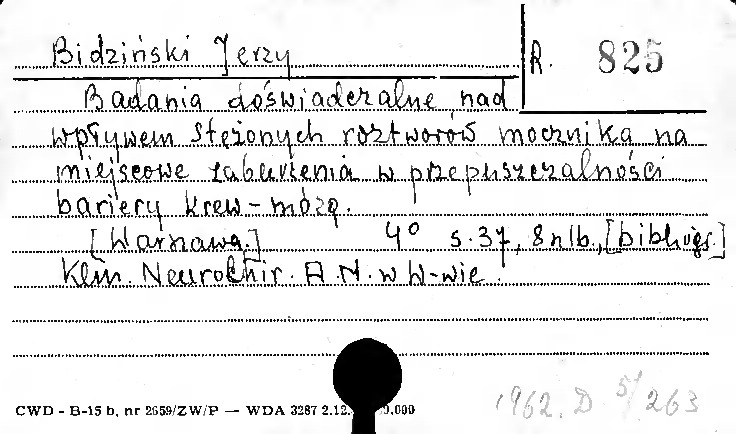 Bidziński Jerzy
R. 825
Badania doświadczalne nad
wpływem stężonych roztworów mocznika na
miejscowe zaburzenia w przepuszczalności
bariery krew-mózg.
[Warszawa.] 4° s. 37, 8 nlb., [bibliogr.]
Klin. Neurochir. A.M. w W-wie.
CWD - B-15 b, nr 2659/ZW/P — WDA 3287 2.12. 0.000
1962. D 5/263